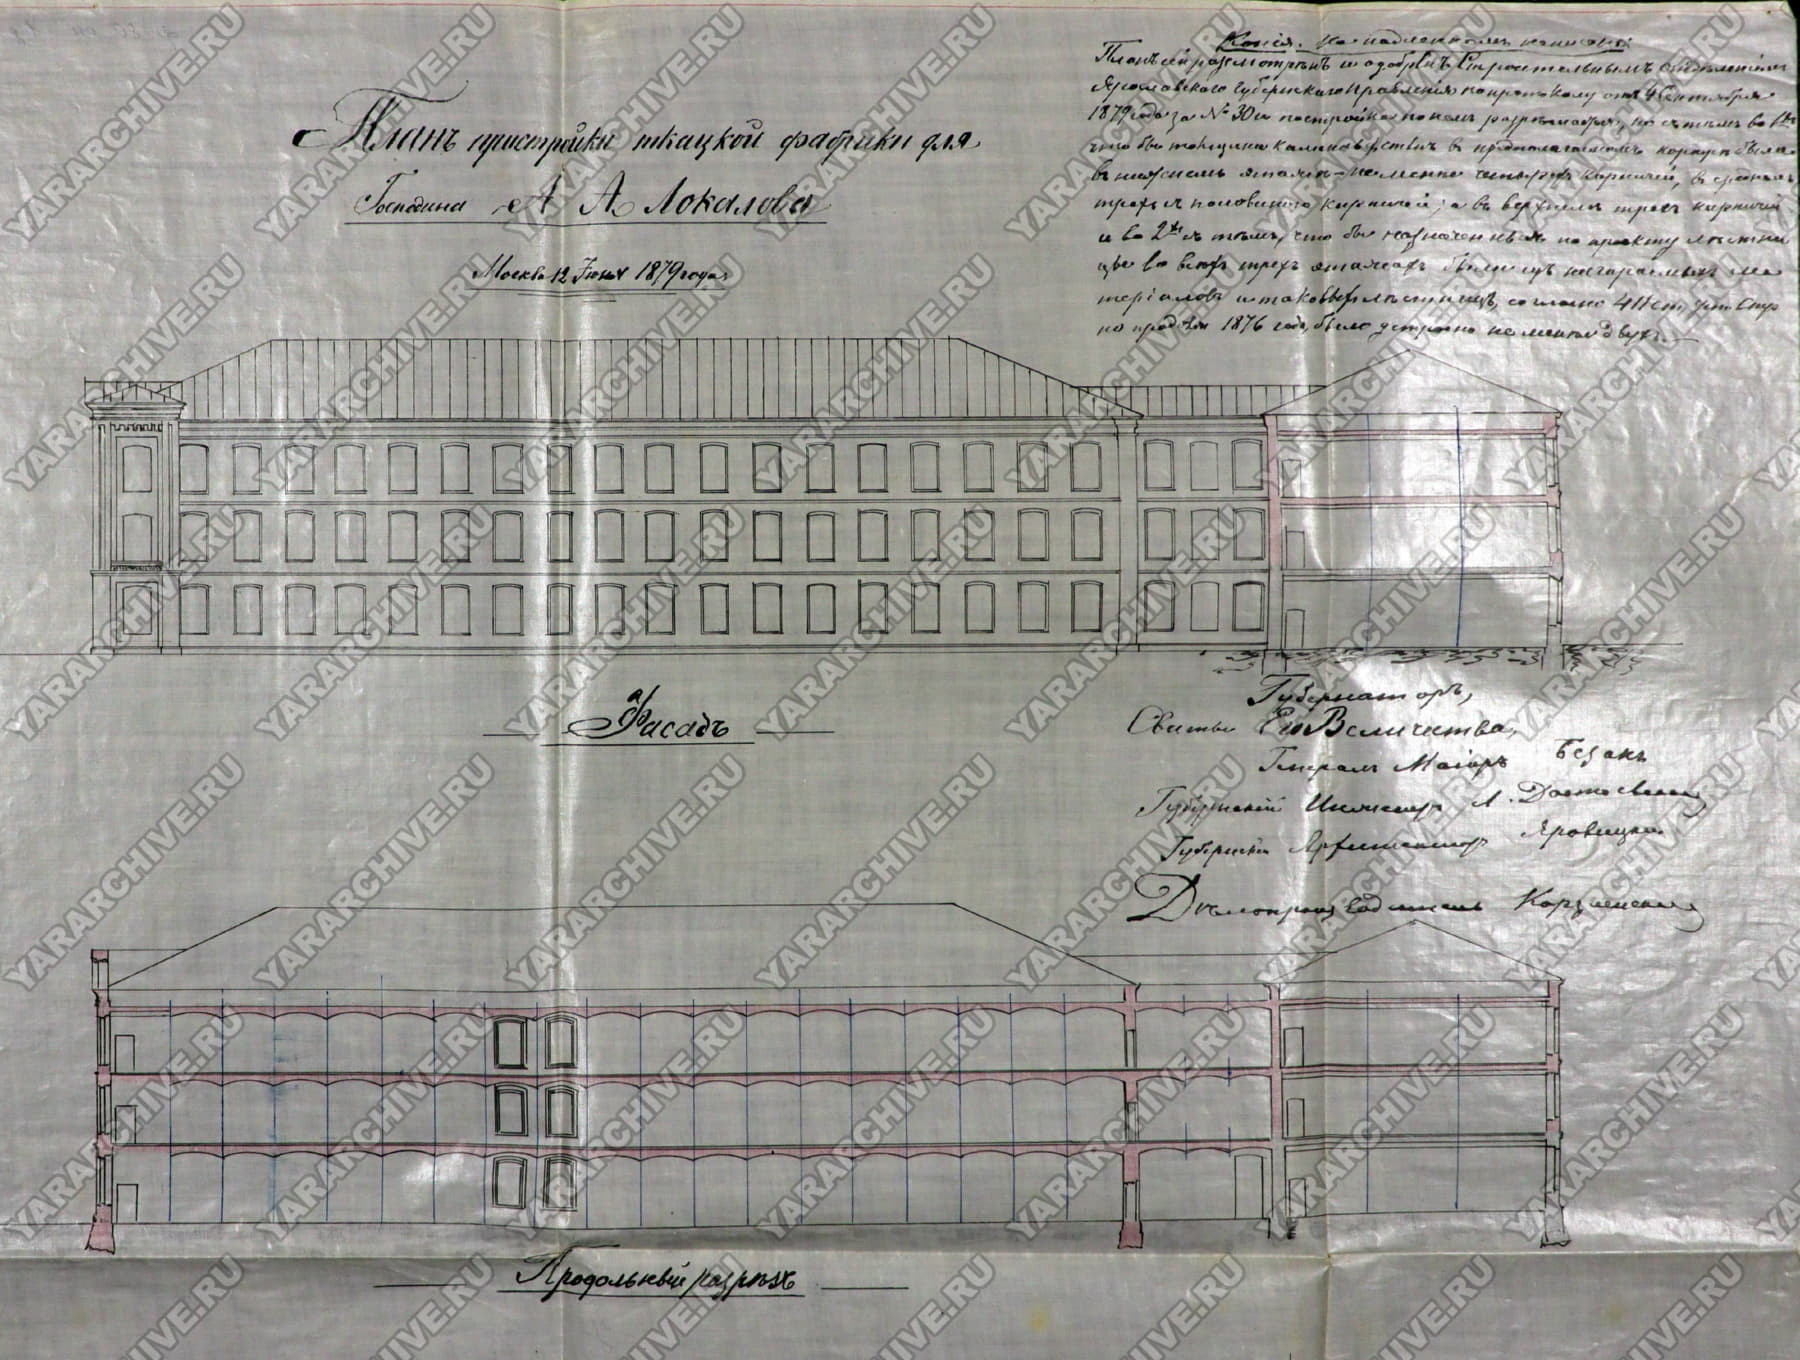 Копія. на подлинномъ написано:
Планъ сей разсмотрѣнъ и одобренъ Строительнымъ Отдѣленіемъ
Ярославскаго Губернскаго Правленія по протоколу отъ 4 Сентября
1879 года за № 30 и постройка по немъ разрѣшается, но съ тѣмъ во 1хъ
что бы толщина каменныхъ стѣнъ въ предполагаемомъ корпусѣ была
въ нижнемъ этажѣ не менѣе четырехъ кирпичей, въ среднемъ
трехъ съ половиною кирпичей, а въ верхнемъ трехъ кирпичей
и во 2хъ съ тѣмъ, что бы назначенныя по проекту лѣстни
цы во всѣхъ трехъ этажахъ были изъ несгараемыхъ ма
теріаловъ и таковыхъ лѣстницъ, согласно 411 ст. уст. Стр.
по прод. 1876 года, было устроено не менѣе двухъ.
Планъ пристройки ткацкой фабрики для
Господина А. А. Локалова
Москва 12 Іюня 1879 года
Фасадъ
Губернаторъ,
Свиты Его Величества,
Генералъ Маіоръ Безакъ
Губернскій Инженеръ А. Достоевскій
Губернскій Архитекторъ Яровицкій
Дѣлопроизводитель
Продольный разрѣзъ
YARARCHIVE.RU